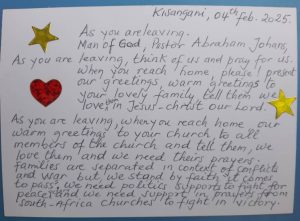 Kisangani, 04th feb. 2025.
As you are leaving.
Man of God, Pastor Abraham Johans,
As you are leaving, think of us and pray for us.
When you reach home please! present
our greetings, warm greetings to
your lovely family tell them we
love you in Jesus-christ our Lord.
As you are leaving, when you reach home our
warm greetings to your church, to all
members of the church and tell them, we
love them and we need theirs prayers.
families are separated in context of conflicts
and war but we stand by faith it comes
to pass, we need politics supports to fight for
peace and we need support in prayers from
south-Africa churches to fight in victory.